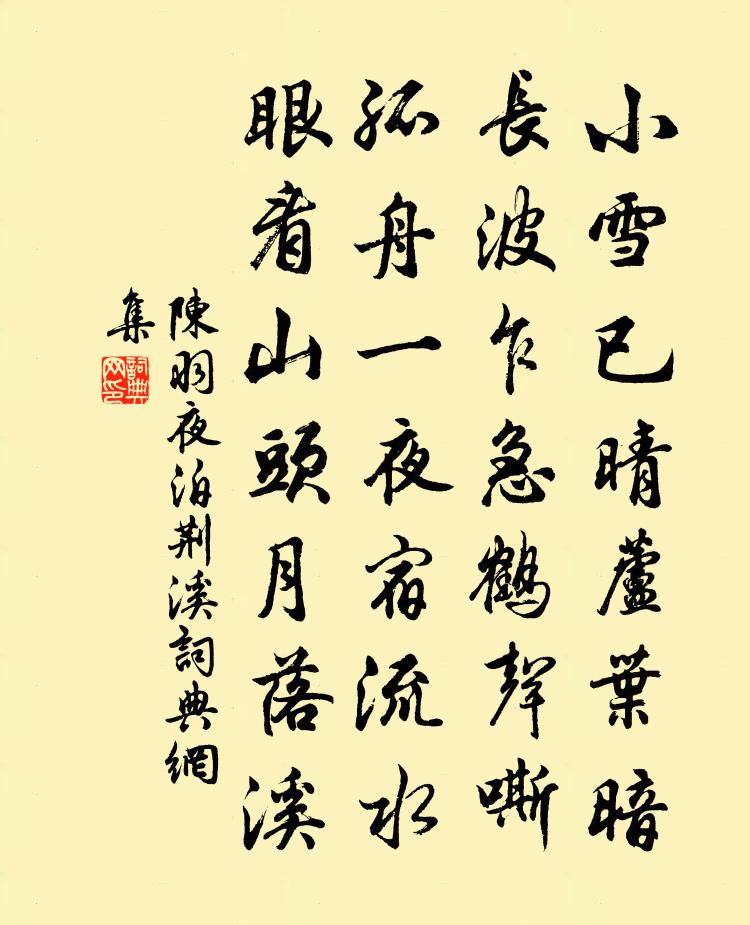 小雪已晴蘆葉暗
長波乍急鶴聲嘶
孤舟一夜宿流水
眼看山頭月落溪
陳羽夜泊荆溪詞典網
集
詞典
网印